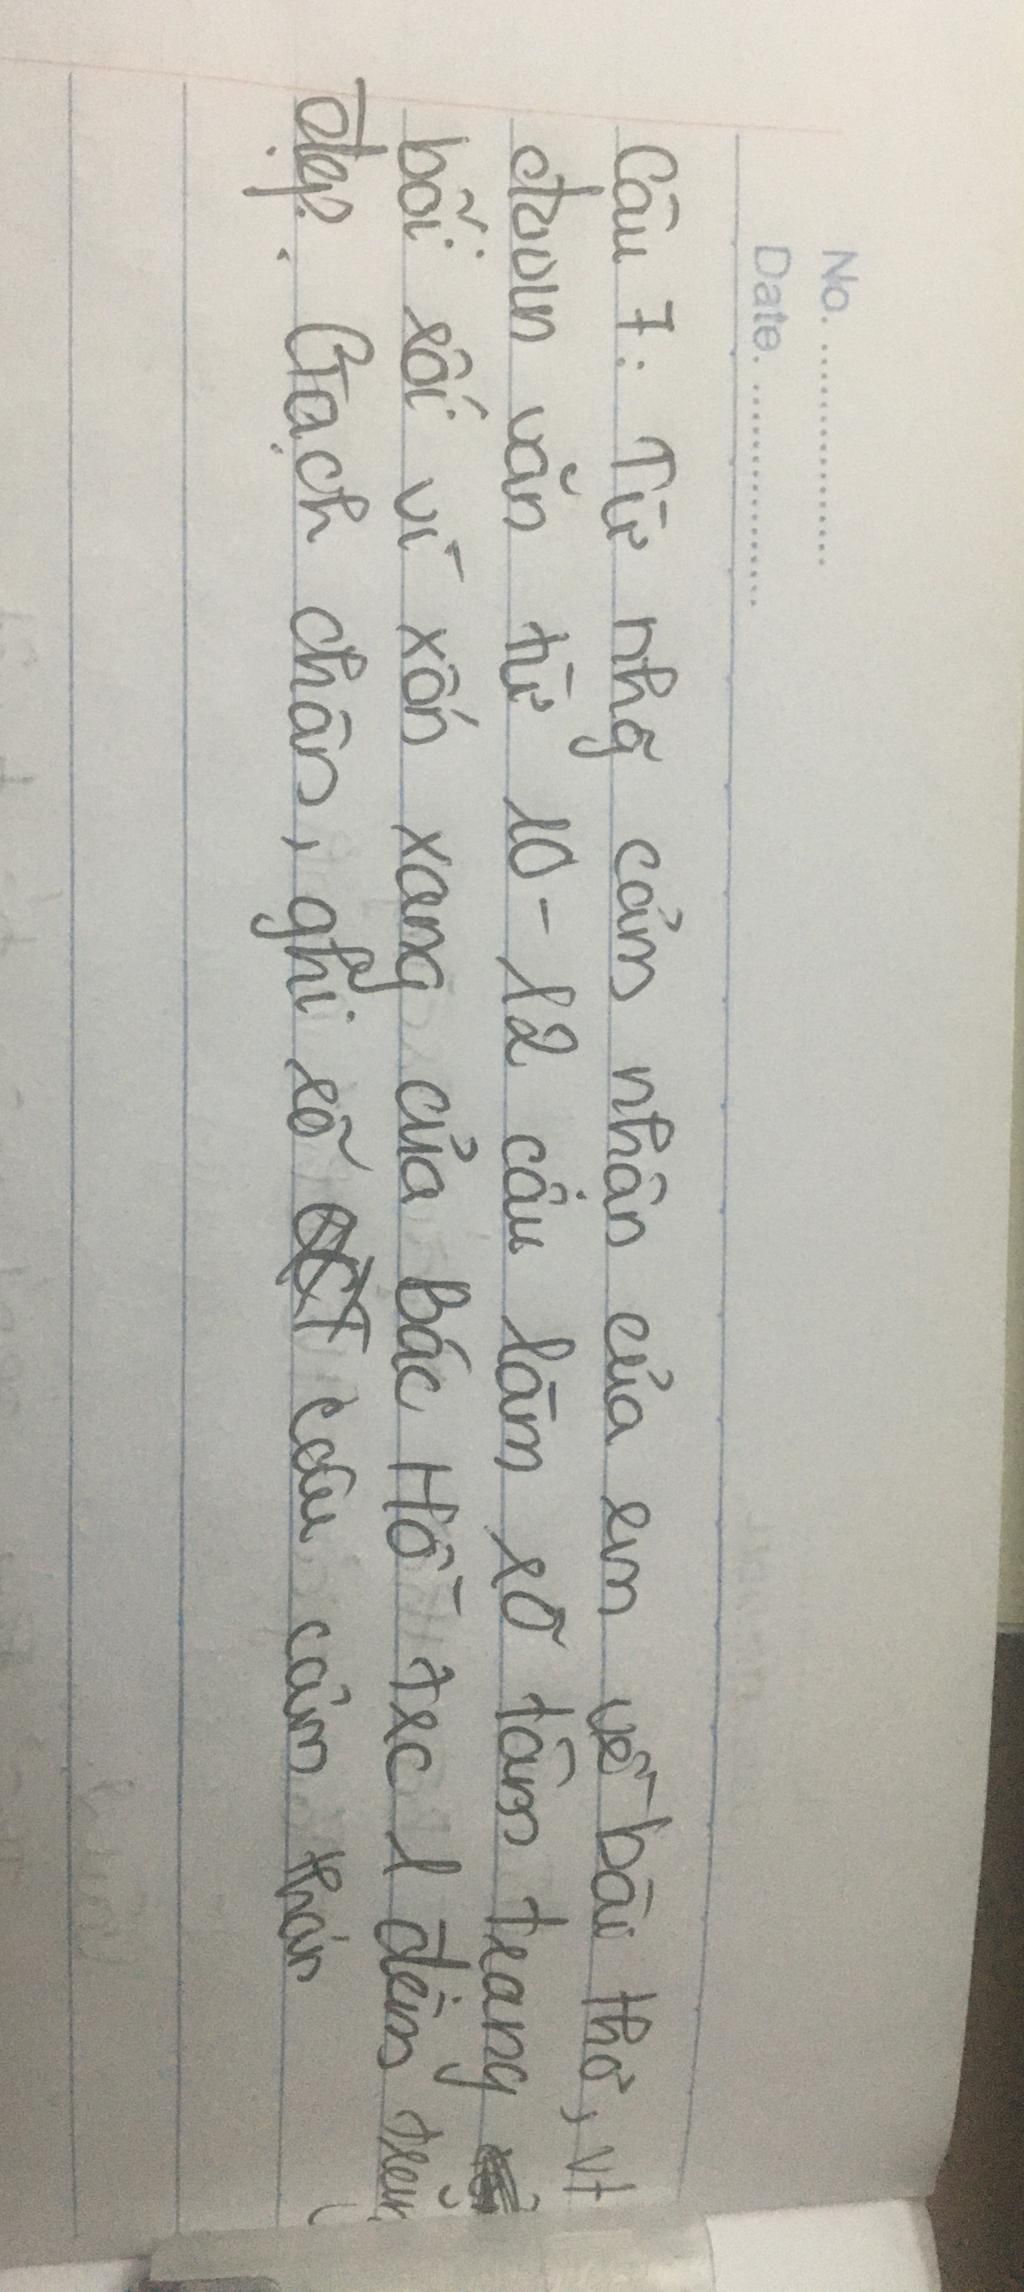 No. ....................
Date. ....................
Câu 7: Từ nhg~ cảm nhân của em về bài thơ, vt
đoạn văn từ 10-12 câu làm rõ tâm trạng
bối rối vì xốn xang của Bác Hồ trc 1 đêm trăng
đẹp. Gạch chân, ghi rõ câu cảm thán